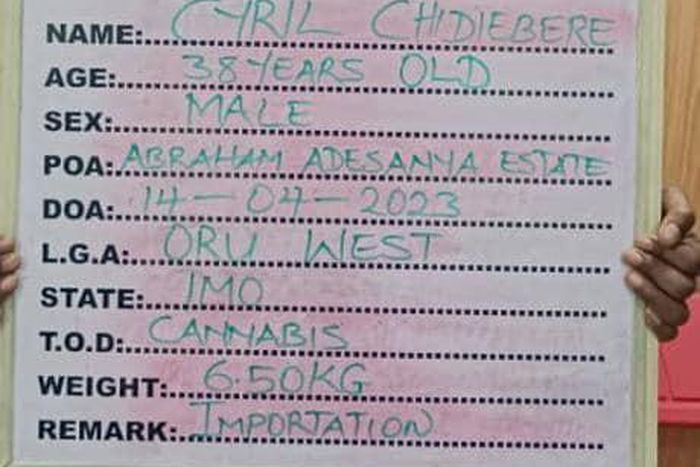 NAME: CYRIL CHIDIEBERE
AGE: 38 YEARS OLD
SEX: MALE
POA: ABRAHAM ADESANYA ESTATE
DOA: 14-04-2023
L.G.A: ORU WEST
STATE: IMO
T.O.D: CANNABIS
WEIGHT: 6.50KG
REMARK: IMPORTATION